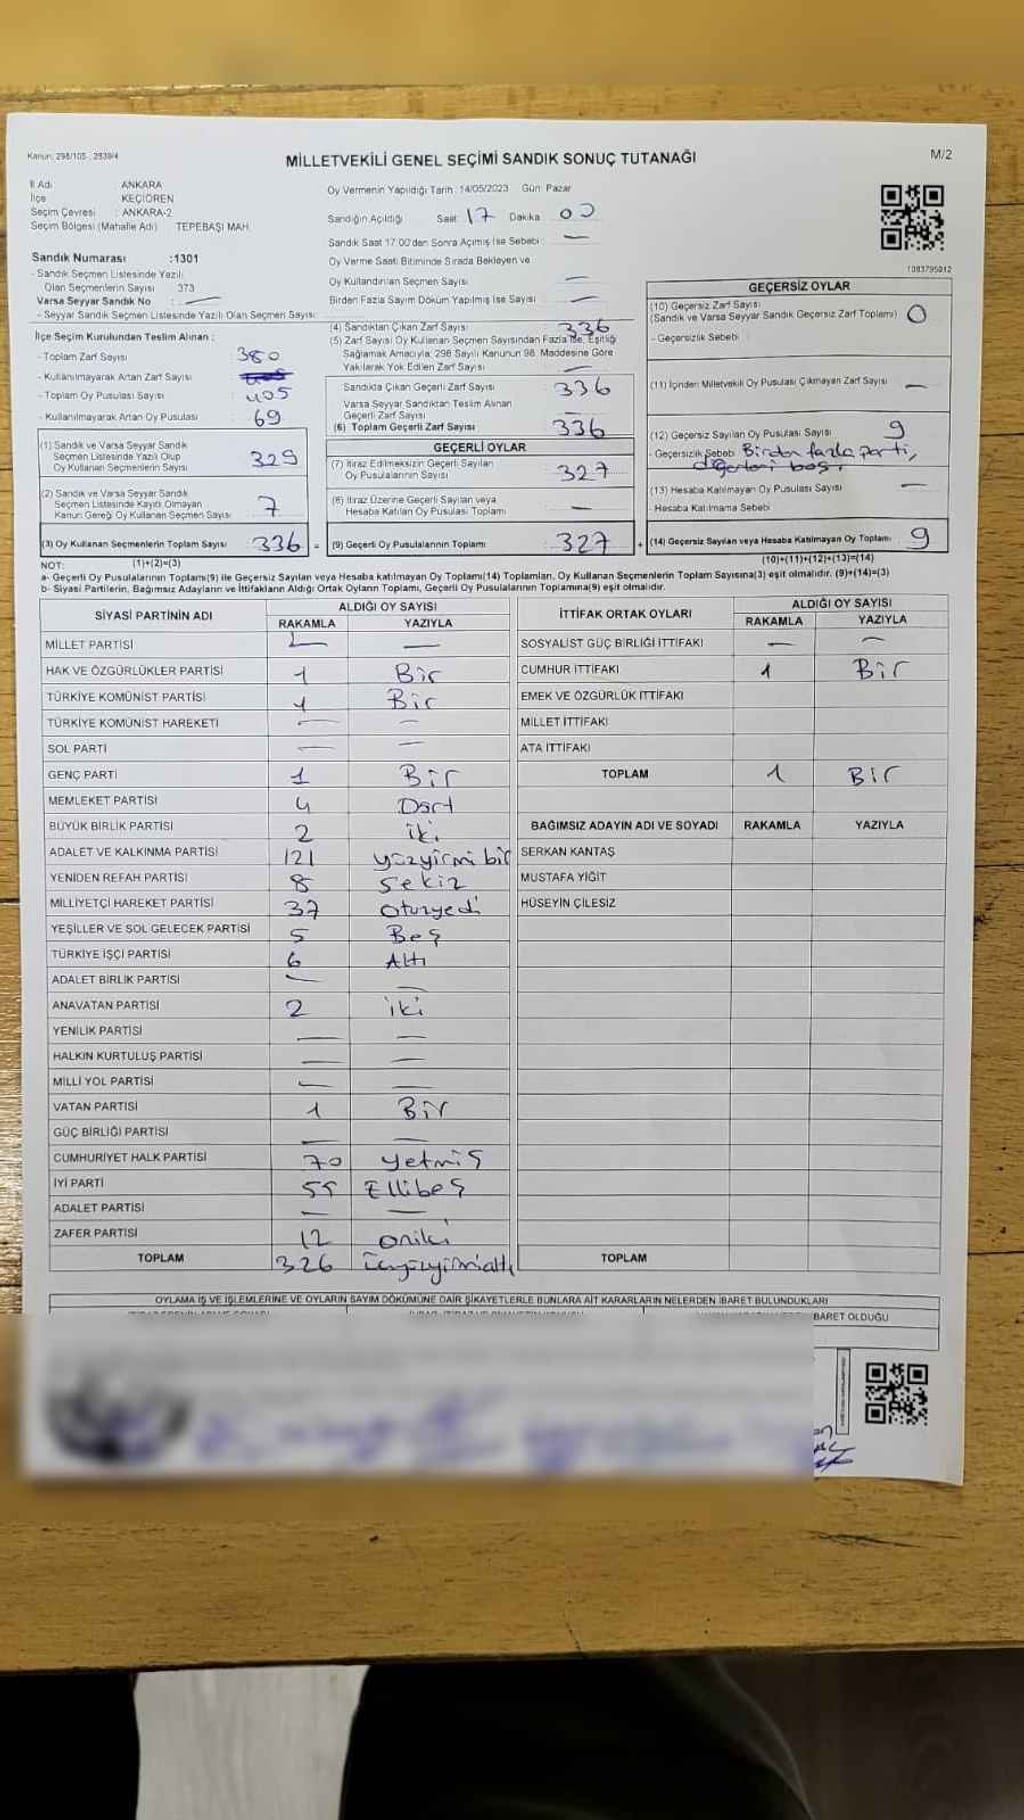 Kanun: 298/105-, 2839/4
MİLLETVEKİLİ GENEL SEÇİMİ SANDIK SONUÇ TUTANAĞI
M/2
İl Adı ANKARA
İlçe KEÇİÖREN
Seçim Çevresi : ANKARA-2
Seçim Bölgesi (Mahalle Adı) TEPEBAŞI MAH.
Sandık Numarası :1301
- Sandık Seçmen Listesinde Yazılı
Olan Seçmenlerin Sayısı 373
Varsa Seyyar Sandık No : —
- Seyyar Sandık Seçmen Listesinde Yazılı Olan Seçmen Sayısı:
Oy Vermenin Yapıldığı Tarih :14/05/2023 Gün: Pazar
Sandığın Açıldığı Saat 17 Dakika 00
Sandık Saat 17:00'den Sonra Açımış İse Sebebi : —
Oy Verme Saati Bitiminde Sırada Bekleyen ve
Oy Kullandırılan Seçmen Sayısı —
Birden Fazla Sayım Döküm Yapılmış İse Sayısı —
1083795012
İlçe Seçim Kurulundan Teslim Alınan :
- Toplam Zarf Sayısı 380
- Kullanılmayarak Artan Zarf Sayısı
- Toplam Oy Pusulası Sayısı 405
- Kullanılmayarak Artan Oy Pusulası 69
(1) Sandık ve Varsa Seyyar Sandık
Seçmen Listesinde Yazılı Olup
Oy Kullanan Seçmenlerin Sayısı 329
(2) Sandık ve Varsa Seyyar Sandık
Seçmen Listesinde Kayıtlı Olmayan
Kanun Gereği Oy Kullanan Seçmen Sayısı 7
(3) Oy Kullanan Seçmenlerin Toplam Sayısı 336 =
(4) Sandıktan Çıkan Zarf Sayısı 336
(5) Zarf Sayısı Oy Kullanan Seçmen Sayısından Fazla İse, Eşitliği
Sağlamak Amacıyla; 298 Sayılı Kanunun 98. Maddesine Göre
Yakılarak Yok Edilen Zarf Sayısı —
Sandıkta Çıkan Geçerli Zarf Sayısı 336
Varsa Seyyar Sandıktan Teslim Alınan
Geçerli Zarf Sayısı —
(6) Toplam Geçerli Zarf Sayısı 336
GEÇERLİ OYLAR
(7) İtiraz Edilmeksizin Geçerli Sayılan
Oy Pusulasının Sayısı 327
(8) İtiraz Üzerine Geçerli Sayılan veya
Hesaba Katılan Oy Pusulası Toplamı —
(9) Geçerli Oy Pusulalarının Toplamı 327 +
GEÇERSİZ OYLAR
(10) Geçersiz Zarf Sayısı
(Sandık ve Varsa Seyyar Sandık Geçersiz Zarf Toplamı) 0
- Geçersizlik Sebebi
(11) İçinden Milletvekili Oy Pusulası Çıkmayan Zarf Sayısı —
(12) Geçersiz Sayılan Oy Pusulası Sayısı 9
- Geçersizlik Sebebi Birden fazla parti,
diğerleri boş.
(13) Hesaba Katılmayan Oy Pusulası Sayısı —
- Hesaba Katılmama Sebebi
(14) Geçersiz Sayılan veya Hesaba Katılmayan Oy Toplamı 9
NOT: (1)+(2)=(3) (10)+(11)+(12)+(13)=(14)
a- Geçerli Oy Pusulalarının Toplamı(9) ile Geçersiz Sayılan veya Hesaba katılmayan Oy Toplamı(14) Toplamları, Oy Kullanan Seçmenlerin Toplam Sayısına(3) eşit olmalıdır. (9)+(14)=(3)
b- Siyasi Partilerin, Bağımsız Adayların ve İttifakların Aldığı Ortak Oyların Toplamı, Geçerli Oy Pusulalarının Toplamına(9) eşit olmalıdır.
SİYASİ PARTİNİN ADI ALDIĞI OY SAYISI
RAKAMLA YAZIYLA
MİLLET PARTİSİ — —
HAK VE ÖZGÜRLÜKLER PARTİSİ 1 Bir
TÜRKİYE KOMÜNİST PARTİSİ 1 Bir
TÜRKİYE KOMÜNİST HAREKETİ — —
SOL PARTİ — —
GENÇ PARTİ 1 Bir
MEMLEKET PARTİSİ 4 Dört
BÜYÜK BİRLİK PARTİSİ 2 iki
ADALET VE KALKINMA PARTİSİ 121 yüzyirmi bir
YENİDEN REFAH PARTİSİ 8 Sekiz
MİLLİYETÇİ HAREKET PARTİSİ 37 otuzyedi
YEŞİLLER VE SOL GELECEK PARTİSİ 5 Beş
TÜRKİYE İŞÇİ PARTİSİ 6 Altı
ADALET BİRLİK PARTİSİ — —
ANAVATAN PARTİSİ 2 iki
YENİLİK PARTİSİ — —
HALKIN KURTULUŞ PARTİSİ — —
MİLLİ YOL PARTİSİ — —
VATAN PARTİSİ 1 Bir
GÜÇ BİRLİĞİ PARTİSİ — —
CUMHURİYET HALK PARTİSİ 70 yetmiş
İYİ PARTİ 55 Ellibeş
ADALET PARTİSİ — —
ZAFER PARTİSİ 12 oniki
TOPLAM 326 üçyüzyirmialtı
İTTİFAK ORTAK OYLARI ALDIĞI OY SAYISI
RAKAMLA YAZIYLA
SOSYALİST GÜÇ BİRLİĞİ İTTİFAKI — —
CUMHUR İTTİFAKI 1 Bir
EMEK VE ÖZGÜRLÜK İTTİFAKI
MİLLET İTTİFAKI
ATA İTTİFAKI
TOPLAM 1 Bir
BAĞIMSIZ ADAYIN ADI VE SOYADI RAKAMLA YAZIYLA
SERKAN KANTAŞ
MUSTAFA YİĞİT
HÜSEYİN ÇİLESİZ
TOPLAM
OYLAMA İŞ VE İŞLEMLERİNE VE OYLARIN SAYIM DÖKÜMÜNE DAİR ŞİKAYETLERLE BUNLARA AİT KARARLARIN NELERDEN İBARET BULUNDUKLARI
BARET OLDUĞU